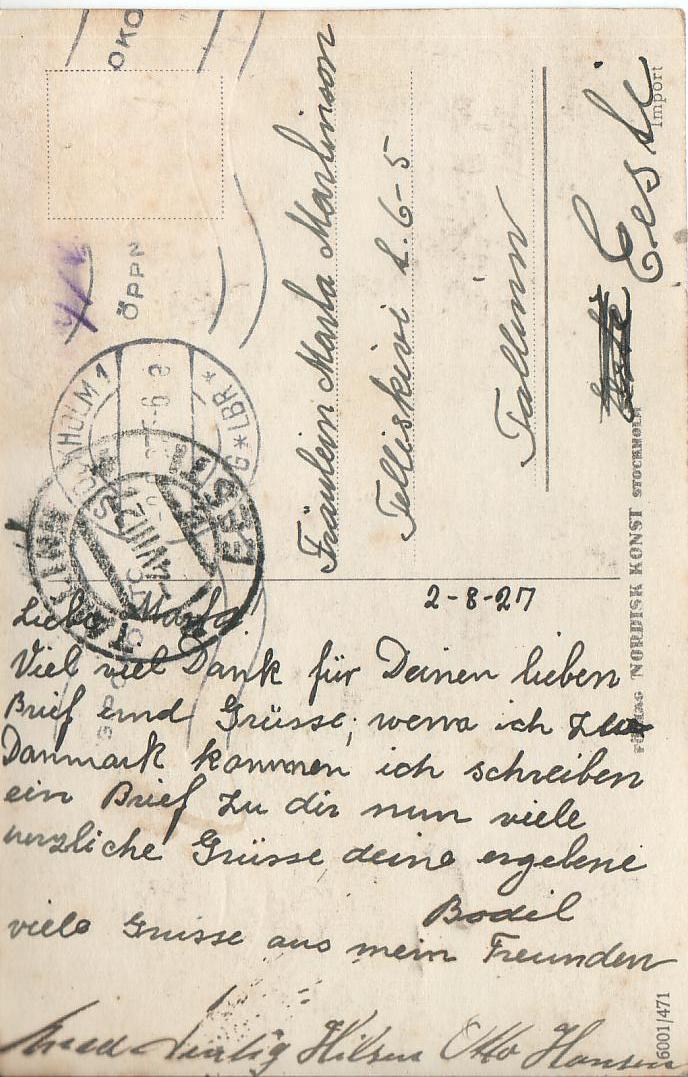 2-8-27
Liebe Marta!
Viel viel Dank für Deinen lieben
Brief und Grüsse; wenn ich zu
Danmark kommen ich schreiben
ein Brief zu dir nun viele
herzliche Grüsse deine ergebene
Bodil
viele Grüsse aus mein Freunden
Med Hilsen Otto Hansen
Fräulein Marta Martinson
Telliskivi t. 6-5
Tallinn
Eesti
Import
NORDISK KONST STOCKHOLM
6001/471
STOCKHOLM 1
LBR
TALLINN
EESTI
ÖPPN